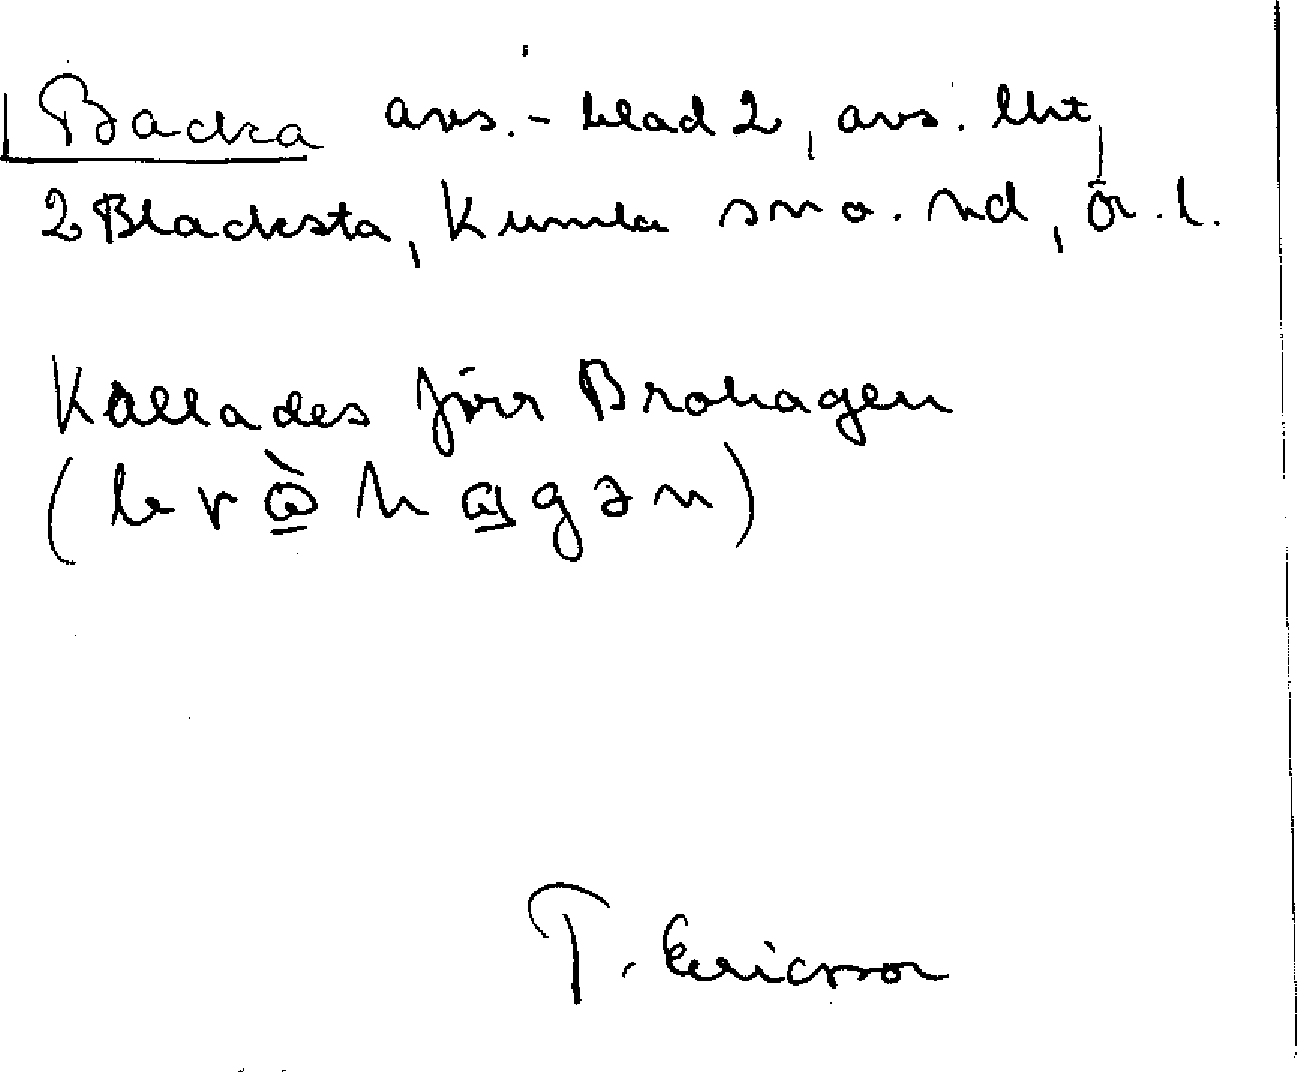 Backa avs.-blad 2, avs. lht,
2 Blacksta, Kumla sn o. hd, Ör. l.
Kallades förr Brohagen
(bròhagən)
T. Ericsson